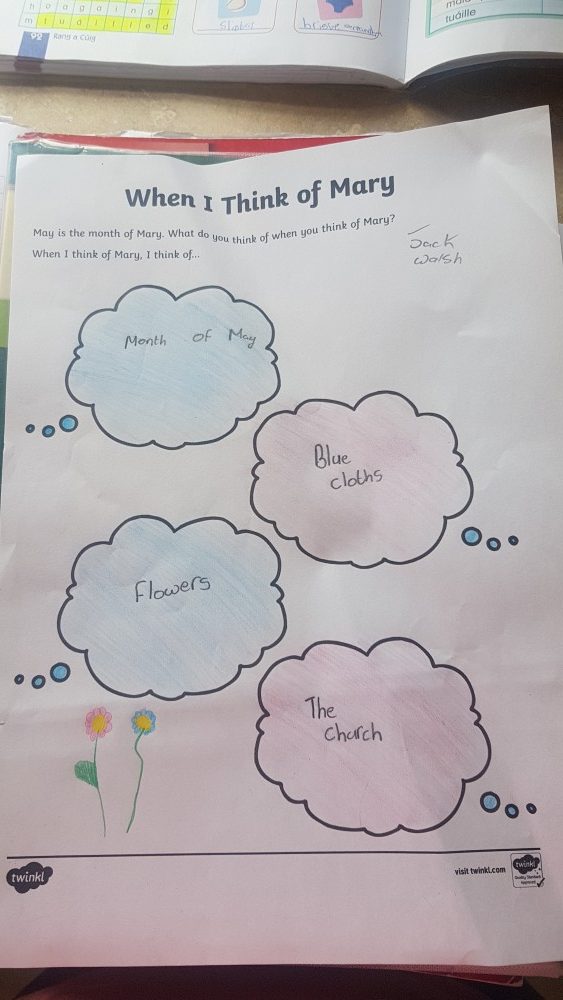 hoagaing
mtuairred
92 Rang a Cúig
tuáille
When I Think of Mary
May is the month of Mary. What do you think of when you think of Mary?
When I think of Mary, I think of...
Jack
Walsh
Month of May
Blue
cloths
Flowers
The
church
twinkl
visit twinkl.com
twinkl
Quality Standard
Approved